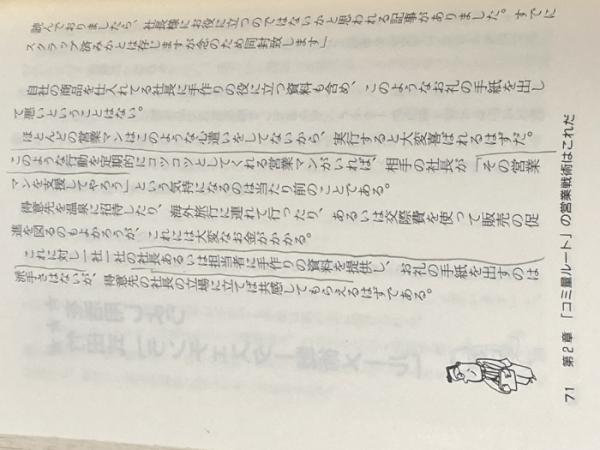 読んでおりましたら、社長様にお役に立つのではないかと思われる記事がありました。すでに
スクラップ済みかとは存じますが念のため同封致します」
自社の商品を仕入れてる社長に手作りの役に立つ資料も含め、このようなお礼の手紙を出し
て悪いということはない。
ほとんどの営業マンはこのような心遣いをしてないから、実行すると大変喜ばれるはずだ。
このような行動を定期的にコツコツとしてくれる営業マンがいれば、相手の社長が「その営業
マンを支援してやろう」という気持になるのは当たり前のことである。
得意先を温泉に招待したり、海外旅行に連れて行ったり、あるいは交際費を使って販売の促
進を図るのもよかろうが、これには大変なお金がかかる。
これに対し一社一社の社長あるいは担当者に手作りの資料を提供し、お礼の手紙を出すのは
派手さはないが、得意先の社長の立場に立てば共感してもらえるはずである。
71 第2章 「コミ量ルート」の営業戦術はこれだ